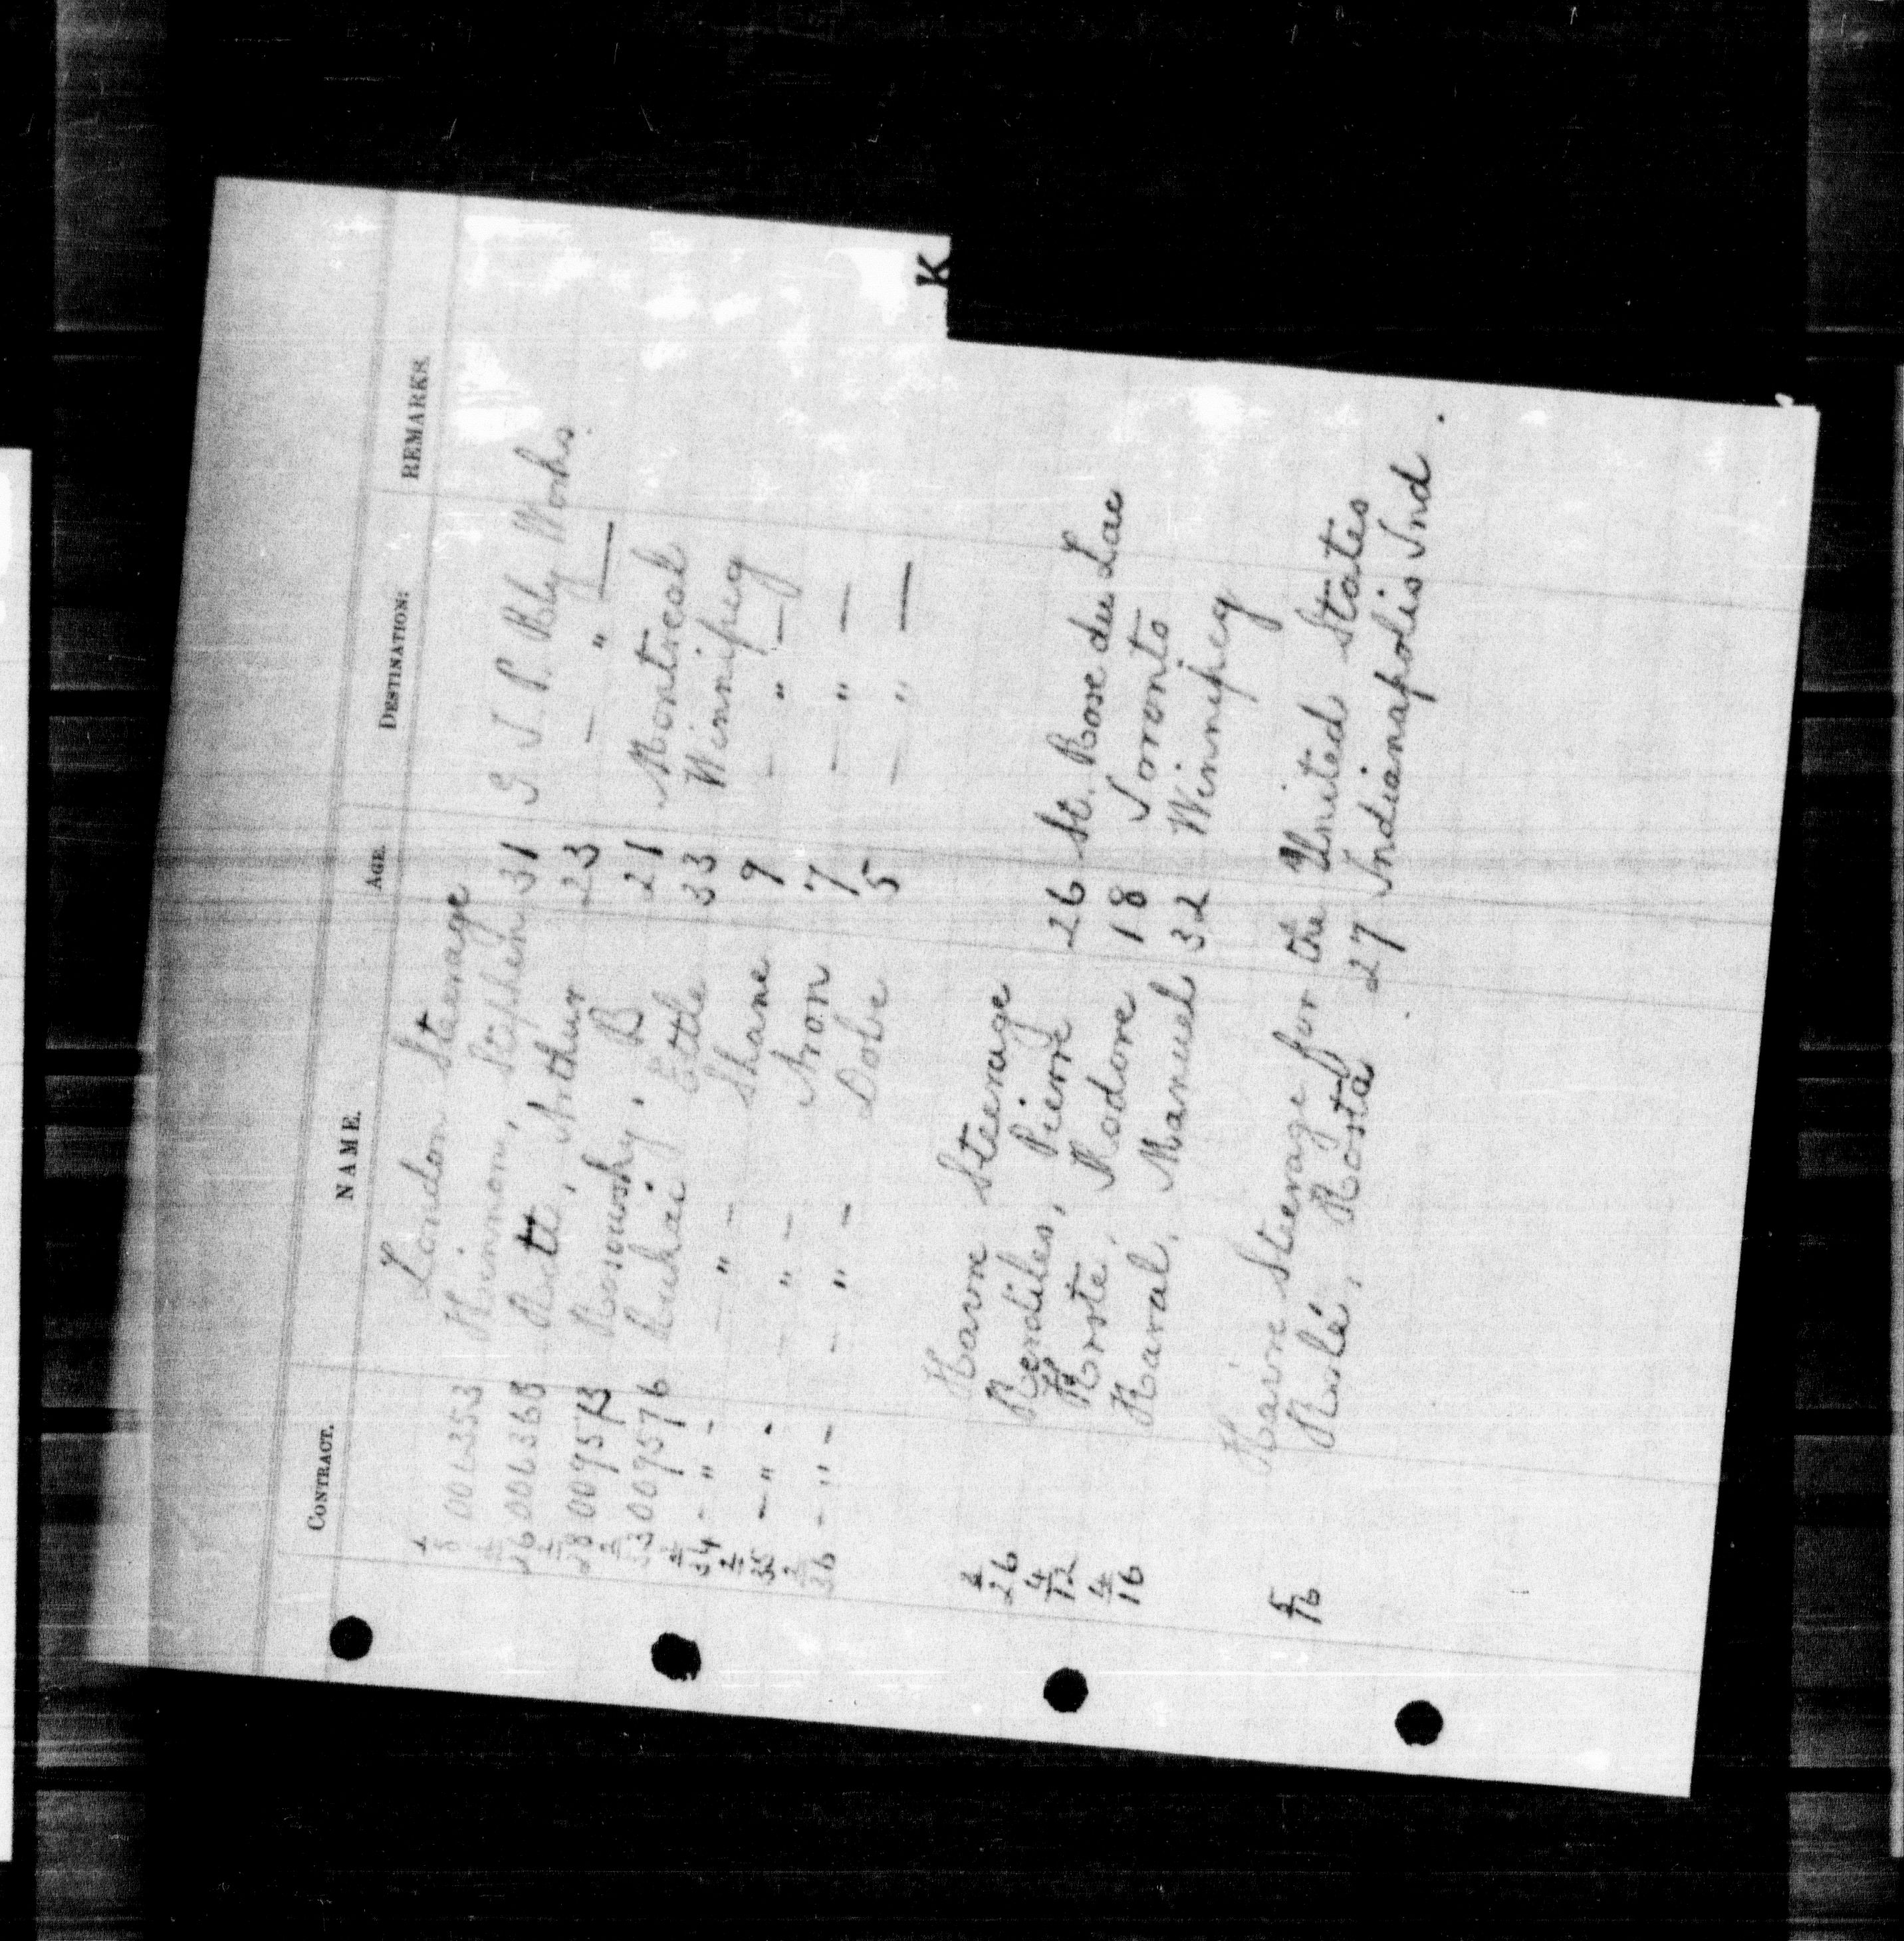 K
CONTRACT. NAME. AGE. DESTINATION: REMARKS.
London Steerage
2/8 006353 Kinnon, Stephen 31 G. T. P. Rly Works.
2/26 006368 Kott, Arthur 23 — " —
2/28 009513 B 21 Montreal
2/33 009576 Ettle 33 Winnipeg
2/34 - " - - " - Shane 9 — " —
2/35 - " - - " - Aron 7 — " —
2/36 - " - - " - Dobe 5 — " —
Havre Steerage
2/26 Kerdiles, Pierre 26 St. Rose du Lac
4/12 Korste, Kodore 18 Toronto
4/16 Karal, Manuel 32 Winnipeg
Havre Steerage for the United States
5/16 Kosta 27 Indianapolis Ind.